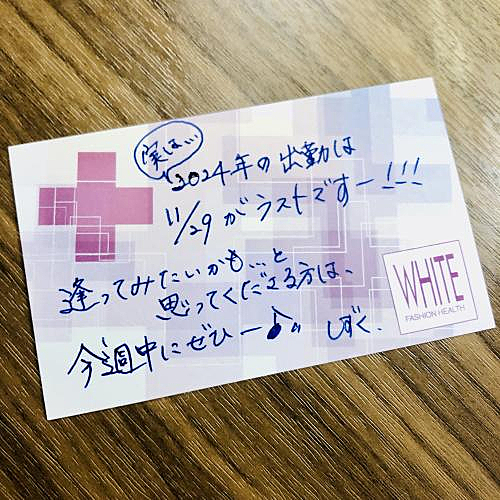 実は…
2024年の出勤は
11/29がラストですー!!!
逢ってみたいかも…と
思ってくださる方は、
今週中にぜひー♪
しずく、
WHITE
FASHION HEALTH